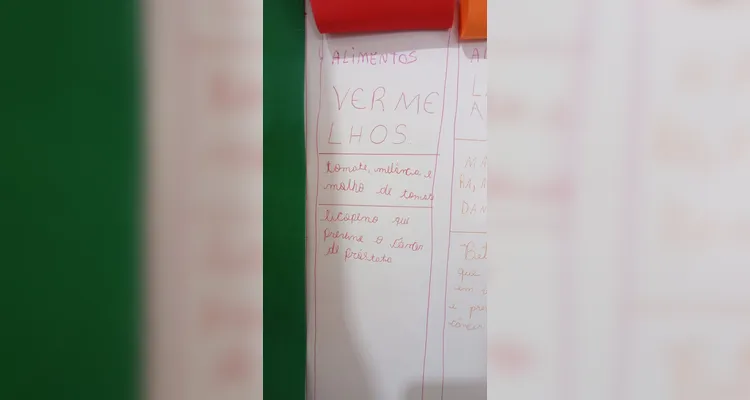 ALIMENTOS
VERME
LHOS
tomate, melância e
molho de tomat
licopeno que
previne o câncer
de próstata
AL
L
A
MA
RA, M
DAM
Bet
que
em
e pre
cânce